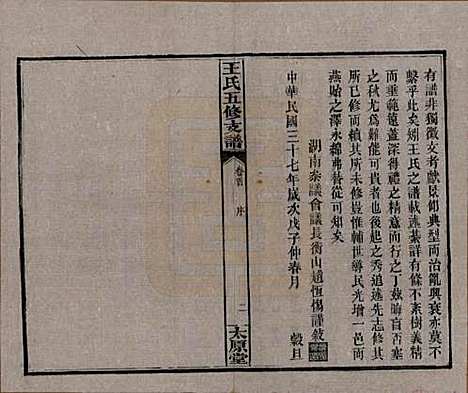 有譜非獨徵文考獻景仰典型而治亂興衰亦莫不
繫乎此矣矧王氏之譜載述綦詳有條不紊樹義精
而垂範遠蓋深得禮之精意而行之丁茲晦盲否塞
之秋尤為難能可貴也後起之秀追述先志修其
所已修尤貴本其所未修豈惟輔世導民光增一邑而
燕貽之澤永綿弗替從可知矣
湖南參議會議長衡山趙恆惕謹敘
中華民國三十七年歲次戊子仲春月 穀旦
王氏五修支譜
卷首 序
二
太原堂